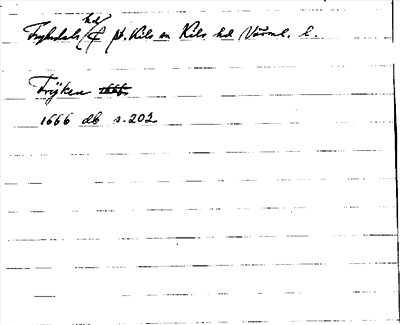 Fryksdals hd pt. Kils sn Kils hd Värml. l.
Frÿken 1666
1666 db s. 202